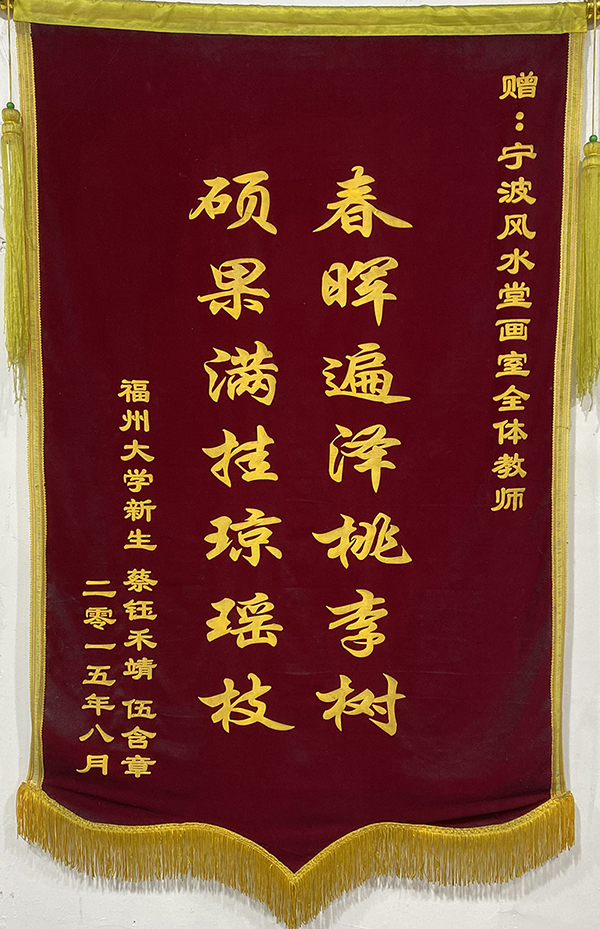 赠：宁波风水堂画室全体教师
春晖遍泽桃李树
硕果满挂琼瑶枝
福州大学新生 蔡钰禾靖 伍含章
二零一五年八月